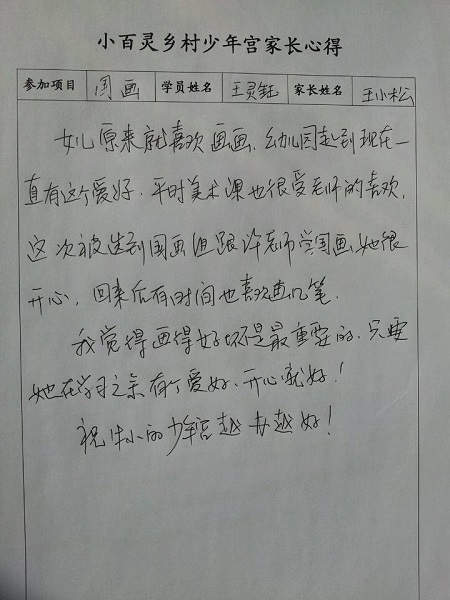 小百灵乡村少年宫家长心得
参加项目 国画 学员姓名 王灵钰 家长姓名 王小松
女儿原来就喜欢画画、幼儿园起到现在一
直有这个爱好.平时美术课也很受老师的喜欢.
这次被选到国画组跟许老师学国画,她很
开心,回来后有时间也喜欢画几笔.
我觉得画得好坏是最重要的.只要
她在学习之余有个爱好、开心就好!
祝中小的少年宫越办越好!